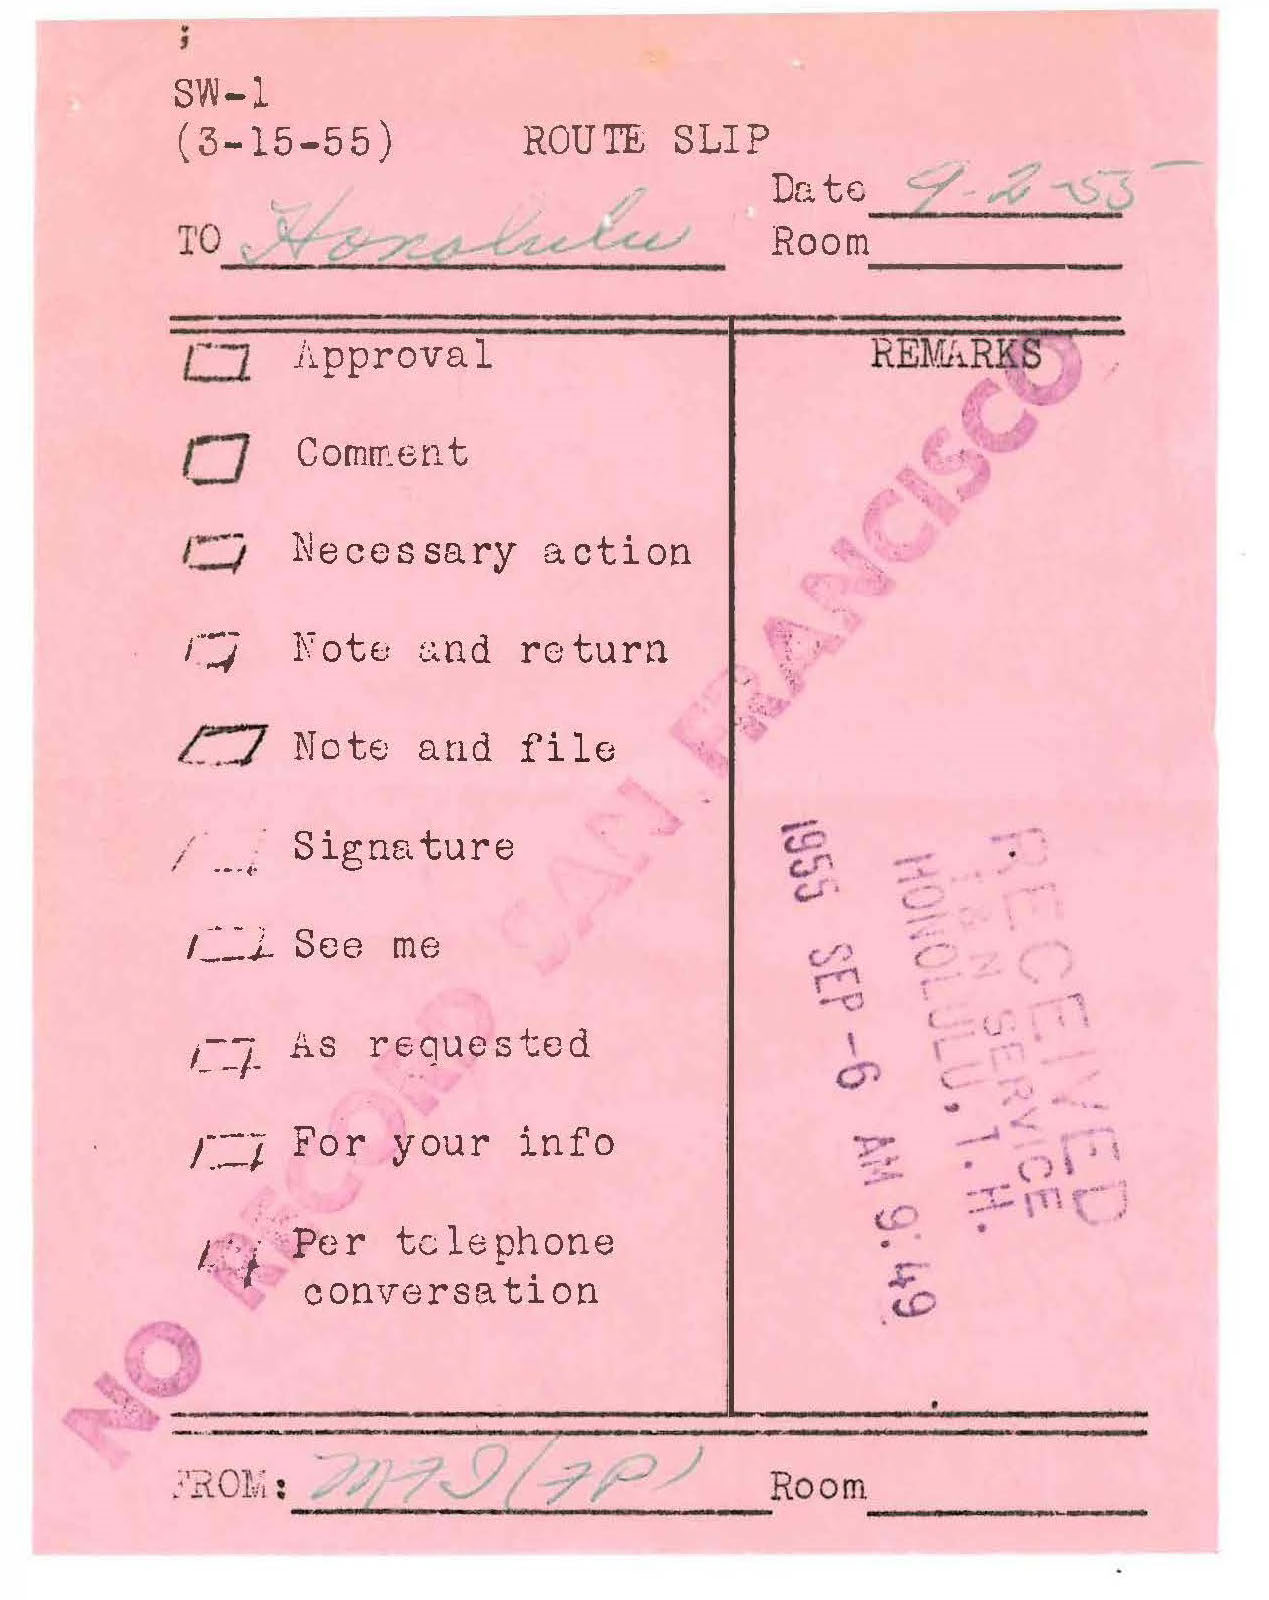 SW-1
(3-15-55) ROUTE SLIP
Date 9-2-55
TO Honolulu Room
REMARKS
Approval
Comment
Necessary action
Note and return
Note and file
Signature
See me
As requested
For your info
Per telephone
conversation
NO RECORD SAN FRANCISCO
RECEIVED
I & N SERVICE
HONOLULU, T. H.
1955 SEP -6 AM 9:49
FROM: Room